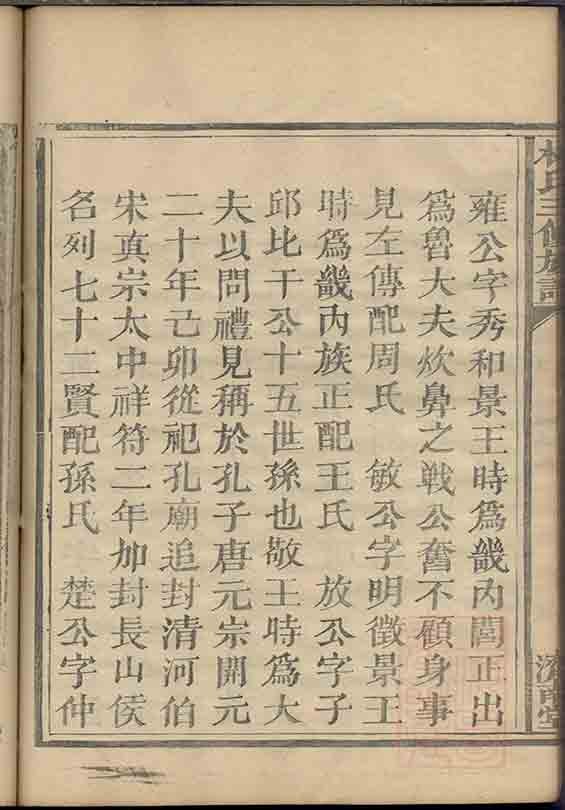 林氏三修族譜
濟南堂
雍公字秀和景王時爲畿内閭正出
爲魯大夫炊鼻之戦公奮不顧身事
見左傳配周氏　敏公字明徵景王
時爲畿内族正配王氏　放公字子
邱比干公十五世孫也敬王時爲大
夫以問禮見稱於孔子唐元宗開元
二十年己卯從祀孔廟追封清河伯
宋真宗太中祥符二年加封長山侯
名列七十二賢配孫氏　楚公字仲